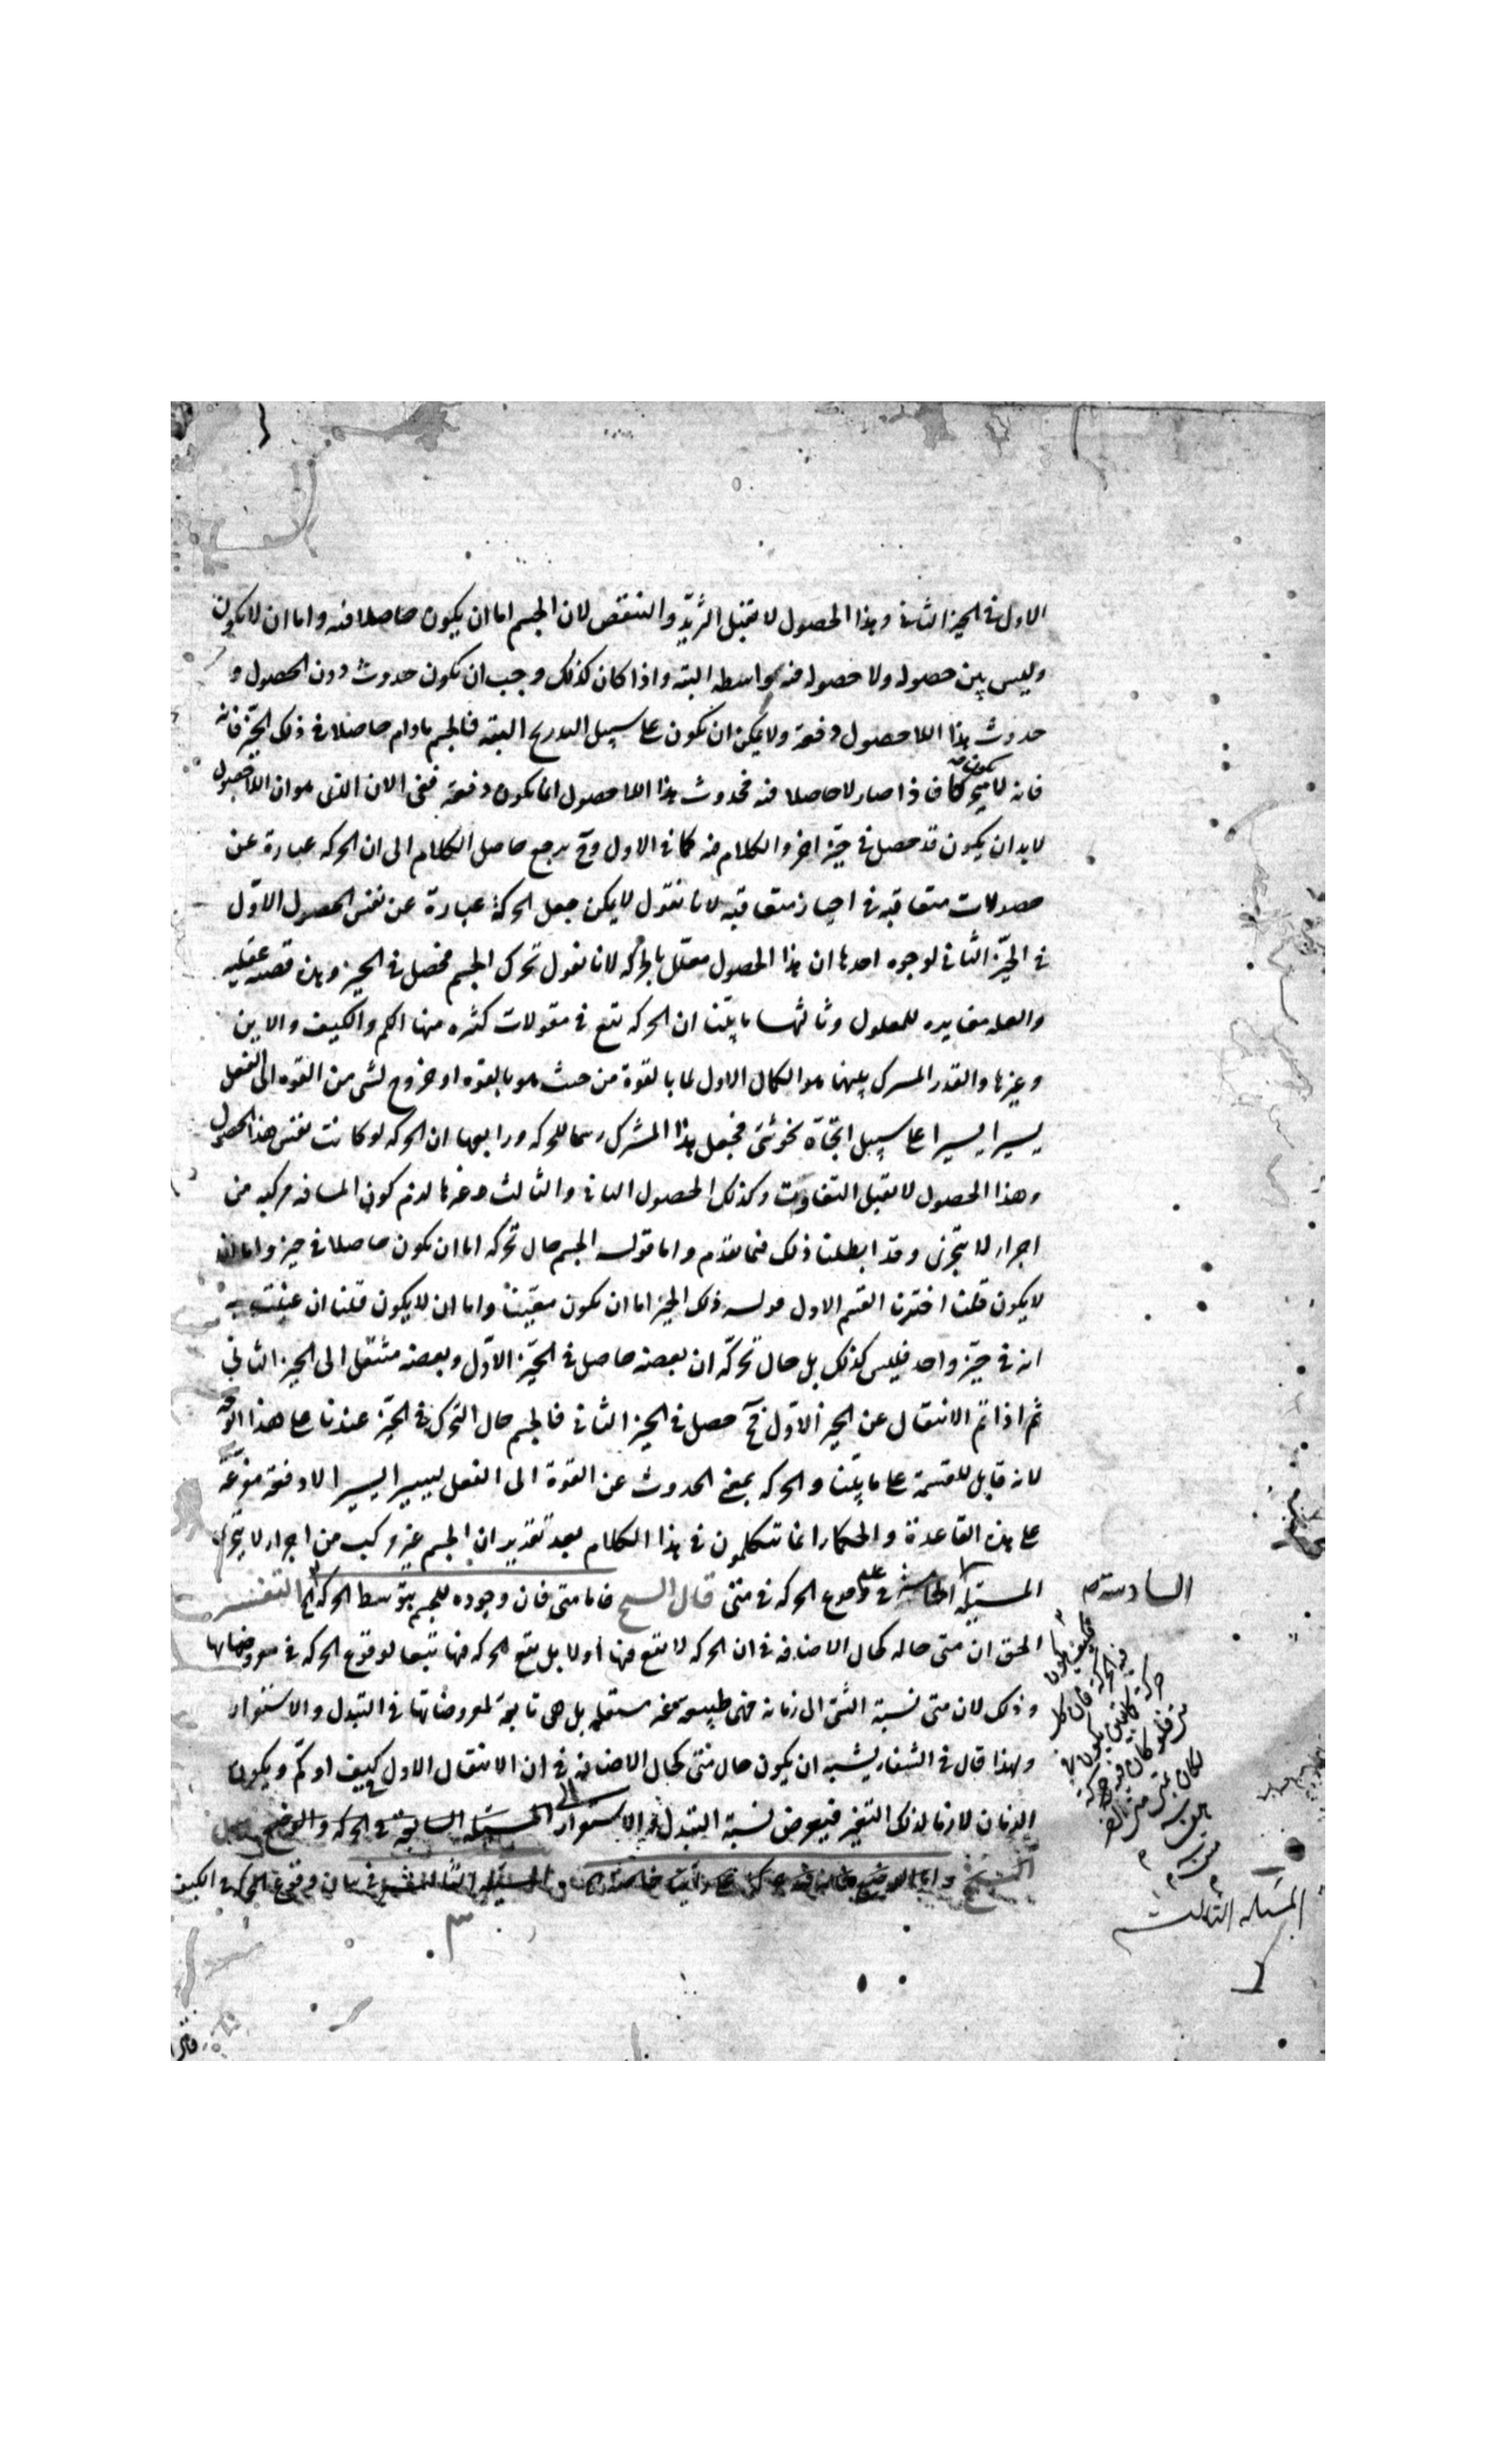 الاول فى الحيز الثانى وهذا الحصول لا يقبل التزيد والتنقص لان الجسم اما ان يكون حاصلا فيه واما ان لا يكون
وليس بين حصوله ولا حصوله فيه واسطه البته واذا كان كذلك وجب ان يكون حدوث دون الحصول و
حدوث هذا اللاحصول دفعة ولا يمكن ان يكون على سبيل التدريج البتة فالجسم مادام حاصلا فى ذلك الحيز فانه
فانه لا متحركا فاذا صار لا حاصلا فيه فحدوث هذا اللاحصول انما يكون دفعة ففى الان الذى هو ان اللاحصول
لا بد ان يكون قد حصل فى حيز اخر والكلام فيه كما فى الاول وح يرجع حاصل الكلام الى ان الحركه عبارة عن
حصولات متعاقبه فى احياز متعاقبه لانا نقول لا يمكن جعل الحركة عبارة عن نفس الحصول الاول
فى الحيز الثانى لوجوه احدها ان هذا الحصول معلل بالحركه لانا نقول تحرك الجسم فحصل فى الحيز وهذه قضيه عقليه
والعله مغايره للمعلول وثالثها ما بينا ان الحركه تقع فى مقولات كثره منها الكم والكيف والاين
وغيرها والقدر المسرك بينها هو الكمال الاول لما بالقوة من حيث هو بالقوه او خروج لشى من القوه الى الفعل
يسيرا يسيرا على سبيل اتجاه نحو شى فجعل هذا المشرك رسما للحركه ورابعها ان الحركه لو كانت نفس هذا الحصول
وهذا الحصول لا يقبل التفاوت وكذلك الحصول الثانى والثالث وغيرها لزم كون المسافه مركبه من
اجزاء لا يتجزى وقد ابطلنا ذلك فيما تقدم واما قوله الجسم حال تحركه اما ان يكون حاصلا فى حيز واما ان
لا يكون قلنا اخترنا القسم الاول قوله ذلك الحيز اما ان يكون معينا واما ان لا يكون قلنا ان عنيت به
انه فى حيز واحد فليس كذلك بل حال تحركه ان بعضه حاصل فى الحيز الاول وبعضه منتقل الى الحيز الثانى
ثم اذا تم الانتقال عن الحيز الاول فح حصل فى الحيز الثانى فالجسم حال التحرك فى الحيز عندنا على هذا الوجه
لانه قابل للقسمة على ما بينا والحركه بمعنى الحدوث عن القوة الى الفعل يسيرا يسيرا لا دفعة متفرعة
على هذه القاعدة والحكماء انما تتكلمون فى هذا الكلام بعد تقدير ان الجسم غير مركب من اجزاء لا يتجزى
المسئلة الخامسة فى وقوع الحركه فى متى قال الشيخ فاما متى فان وجوده للجسم بتوسط الحركه الخ التفسير
السادسة
الحق ان متى حاله كحال الاضافه فى ان الحركه لا تقع فيها اولا بل تقع الحركه فيها تبعا لوقوع الحركه فى معروضاتها
وذلك لان متى نسبة الشى الى زمانه فهى طبيعه غير مستقله بل هى تابعة لمعروضاتها فى التبدل والاستقرار
ولهذا قال فى الشفاء يشبه ان يكون حال متى كحال الاضافه فى ان الانتقال الاول كيف او كم ويكون
الزمان لازما لذلك التغير فيعرض نسبة التبدل والاستقرار المسئله السابعة فى الحركه والوضع
المسئله الثالثه